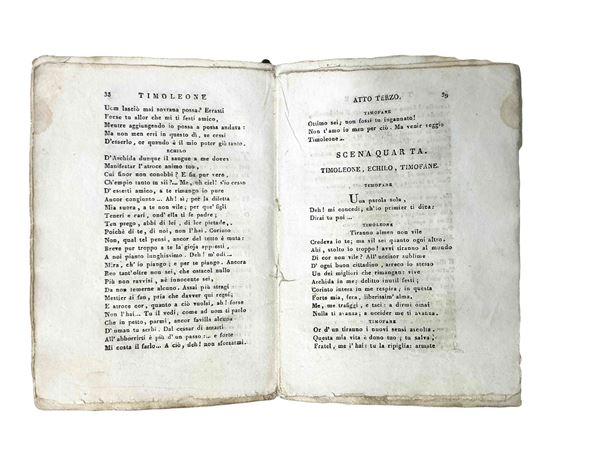 38 TIMOLEONE
Uom lasciò mai sovrana possa? Errasti
Forse tu allor che mi ti festi amico,
Mentre aggiungendo io possa a possa andava:
Ma non men erri in questo dì, se cessi
D'esserlo, or quando è il mio poter già tanto.
ECHILO
D'Archida dunque il sangue a me dovea
Manifestar l'atroce animo tuo,
Cui finor non conobbi? E fia pur vero,
Ch'empio tanto in sii?... Me, oh ciel! s'io cesso
D'esserti amico, a te rimango io pure
Ancor congiunto... Ah! sì; per la diletta
Mia suora, a te non vile; per que' figli
Teneri e rari, ond' ella ti fe padre;
Ten prego, abbi di lei, di lor pietade,
Poichè di te, di noi, non l'hai. Corinto
Non, qual tel pensi, ancor del tutto è muta:
Breve pur troppo a te la gioja appresti,
A noi pianto lunghissimo. Deh! m'odi...
Mira, ch' io piango; e per te piango. Ancora
Reo tant'oltre non sei, che ostacol nullo
Più non ravvisi, nè innocente sei,
Da non temerne alcuno. Assai più stragi
Mestier ti fan, pria che davver qui regni;
E atroce cor, quanto a ciò vuolsi, ah! forse
Non l'hai... Tu il vedi, come ad uom ti parlo
Che in petto, parmi, ancor favilla alcuna
D'uman tu serbi. Dal cessar di amarti
All' abborrirti è più d'un passo:... e forte
Mi costa il farlo... A ciò, deh! non sforzarmi.
ATTO TERZO. 39
TIMOFANE
Ottimo sei; non fossi tu ingannato!
Non t'amo io men per ciò. Ma venir veggio
Timoleone...
SCENA QUARTA.
TIMOLEONE, ECHILO, TIMOFANE.
TIMOFANE
Una parola sola,
Deh! mi concedi, ch'io primier ti dica:
Dirai tu poi...
TIMOLEONE
Tiranno almen non vile
Credeva io te; ma vil sei quanto ogni altro.
Ahi, stolto io troppo! avvi tiranno al mondo
Di cor non vile? All' uccisor sublime
D' ogni buon cittadino, arreco io stesso
Un dei migliori che rimangan: vive
Archida in me; delitto inutil festi;
Corinto intera in me respira; in questa
Forte mia, fera, liberissim' alma.
Me, me trafiggi, e taci: a dirmi omai
Nulla ti avanza; a uccider me ti avanza.
TIMOFANE
Or d' un tiranno i nuovi sensi ascolta.
Questa mia vita è dono tuo; tu salva,
Fratel, me l'hai: tu la ripiglia: armate